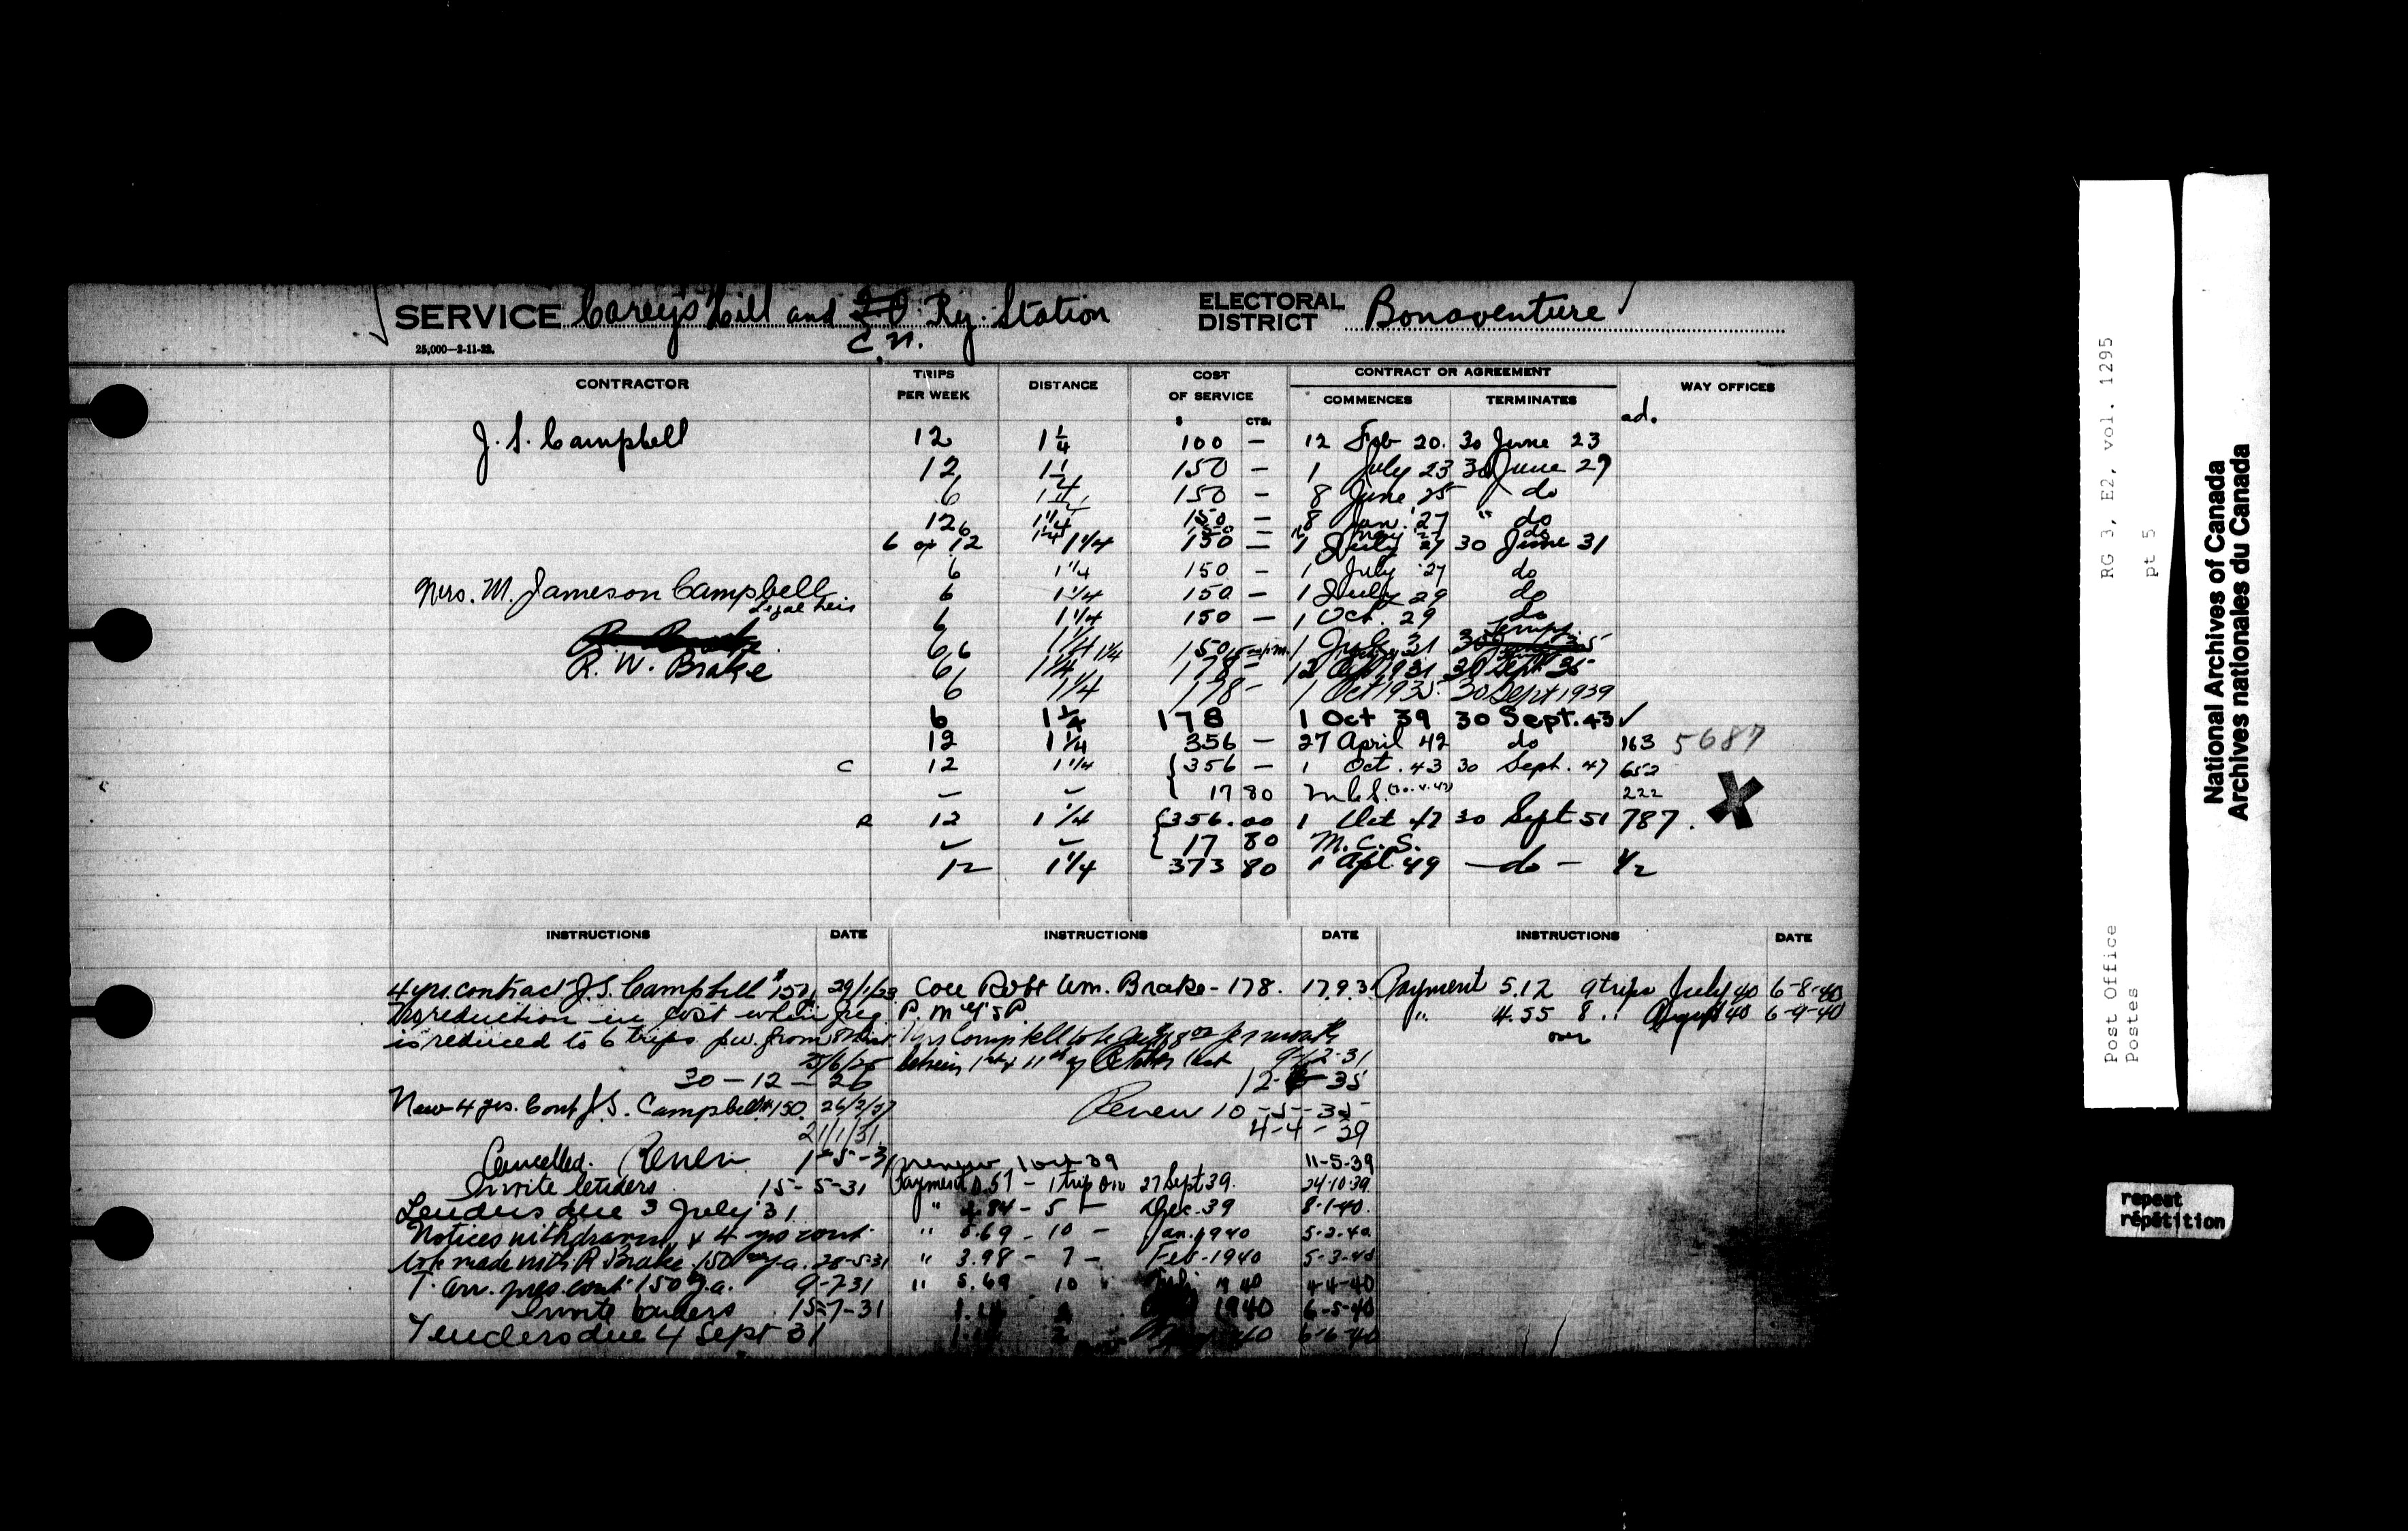 SERVICE Carey's Hill and Ry. Station ELECTORAL DISTRICT Bonaventure
C.N.
25,000—2-11-22.
CONTRACTOR TRIPS PER WEEK DISTANCE COST OF SERVICE CONTRACT OR AGREEMENT WAY OFFICES
$ CTS. COMMENCES TERMINATES
ad.
J. S. Campbell 12 1 1/4 100 — 12 Feb 20. 30 June 23
12 1 1/4 150 — 1 July 23 30 June 27
6 150 — 8 June '25 do
12 1 1/4 150 — 8 Jan. '27 " do
6 or 12 1 1/4 150 — 1 July '27 30 June 31
6 1 1/4 150 — 1 July '27 do
Mrs. M. Jameson Campbell 6 1 1/4 150 — 1 July 29 do
Legal heir
6 1 1/4 150 — 1 Oct. 29 do
Temp.
6 1 1/4 150 1 July 31
R. W. Brake 6 1 1/4 178 — 12 Oct 1931 30 Sept 35
6 1 1/4 178 — 1 Oct 1935 30 Sept 1939
6 1 1/4 178 1 Oct 39 30 Sept. 43 ✓
12 1 1/4 356 — 27 April 42 do 163 5687
C 12 1 1/4 {356 — 1 Oct. 43 30 Sept. 47 652
— — 17 80 222
R 12 1 1/4 {356.00 1 Oct 47 30 Sept 51 787. X
— — {17 80 M.C.S.
12 1 1/4 373 80 1 Apl 49 — do — 1/2
INSTRUCTIONS DATE INSTRUCTIONS DATE INSTRUCTIONS DATE
4 yrs. contract J. S. Campbell $150 29/1/23
No reduction in cost when freq
is reduced to 6 trips p.w. from 8
25/6/25
30 — 12 — 26
New 4 yrs. Cont J.S. Campbell $150. 26/2/27
21/1/31
Cancelled. Renew 1-5-31
Invite tenders 15-5-31
Tenders due 3 July 31
Notices withdrawn & 4 yrs cont.
to be made with R Brake 150 p.a. 28-5-31
T. arr. pres. cont 150 p.a. 9-7-31
Invite tenders 15-7-31
Tenders due 4 Sept 31
Robt Wm. Brake - 178. 17.9.3
Campbell to be per month
between 1st & 11th of October last 9-12-31
12- -35
Renew 10-5-35
4-4-39
renew 1 Oct 39 11-5-39
Payment 0.57 — 1 trip on 27 Sept 39. 24-10-39.
" 2.84 - 5 — Dec. 39 8-1-40.
" 5.69 - 10 — Jan. 1940 5-2-40
" 3.98 - 7 — Feb. 1940 5-3-40
" 5.69 10 " 1940 4-4-40
1940 6-5-40
40 6-6-40
Payment 5.12 9 trips July 40 6-8-40
" 4.55 8 " August 40 6-9-40
over
RG 3, E2, vol. 1295
pt 5
Post Office
Postes
National Archives of Canada
Archives nationales du Canada
repeat
répétition